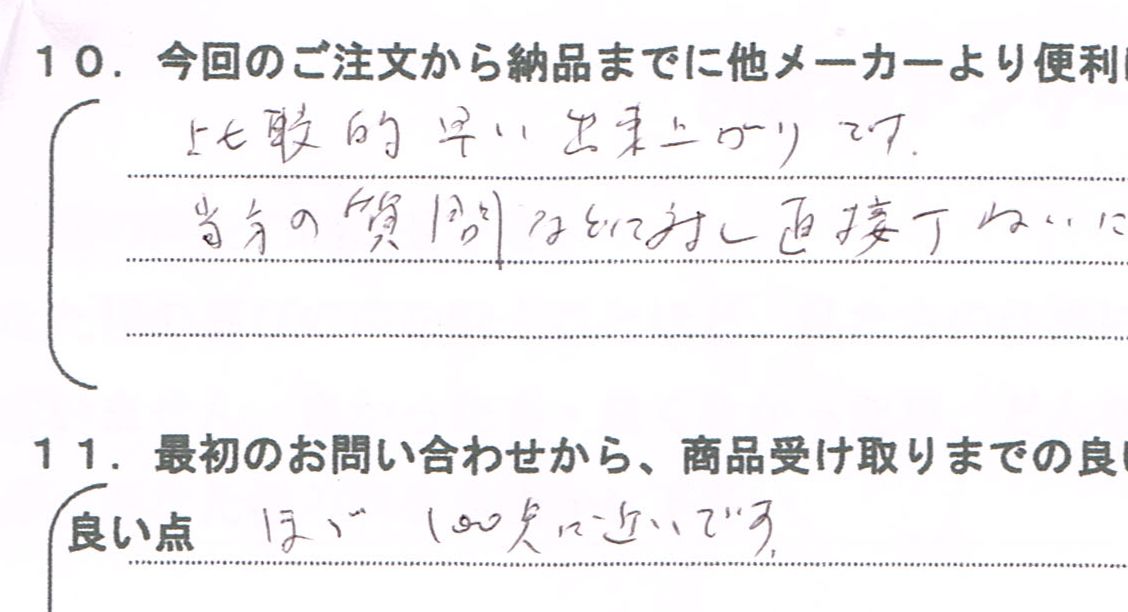 10．今回のご注文から納品までに他メーカーより便利
比較的早い出来上がりです.
当方の質問などに対し直接丁ねいに
11．最初のお問い合わせから、商品受け取りまでの良
良い点 ほゞ 100点に近いです.